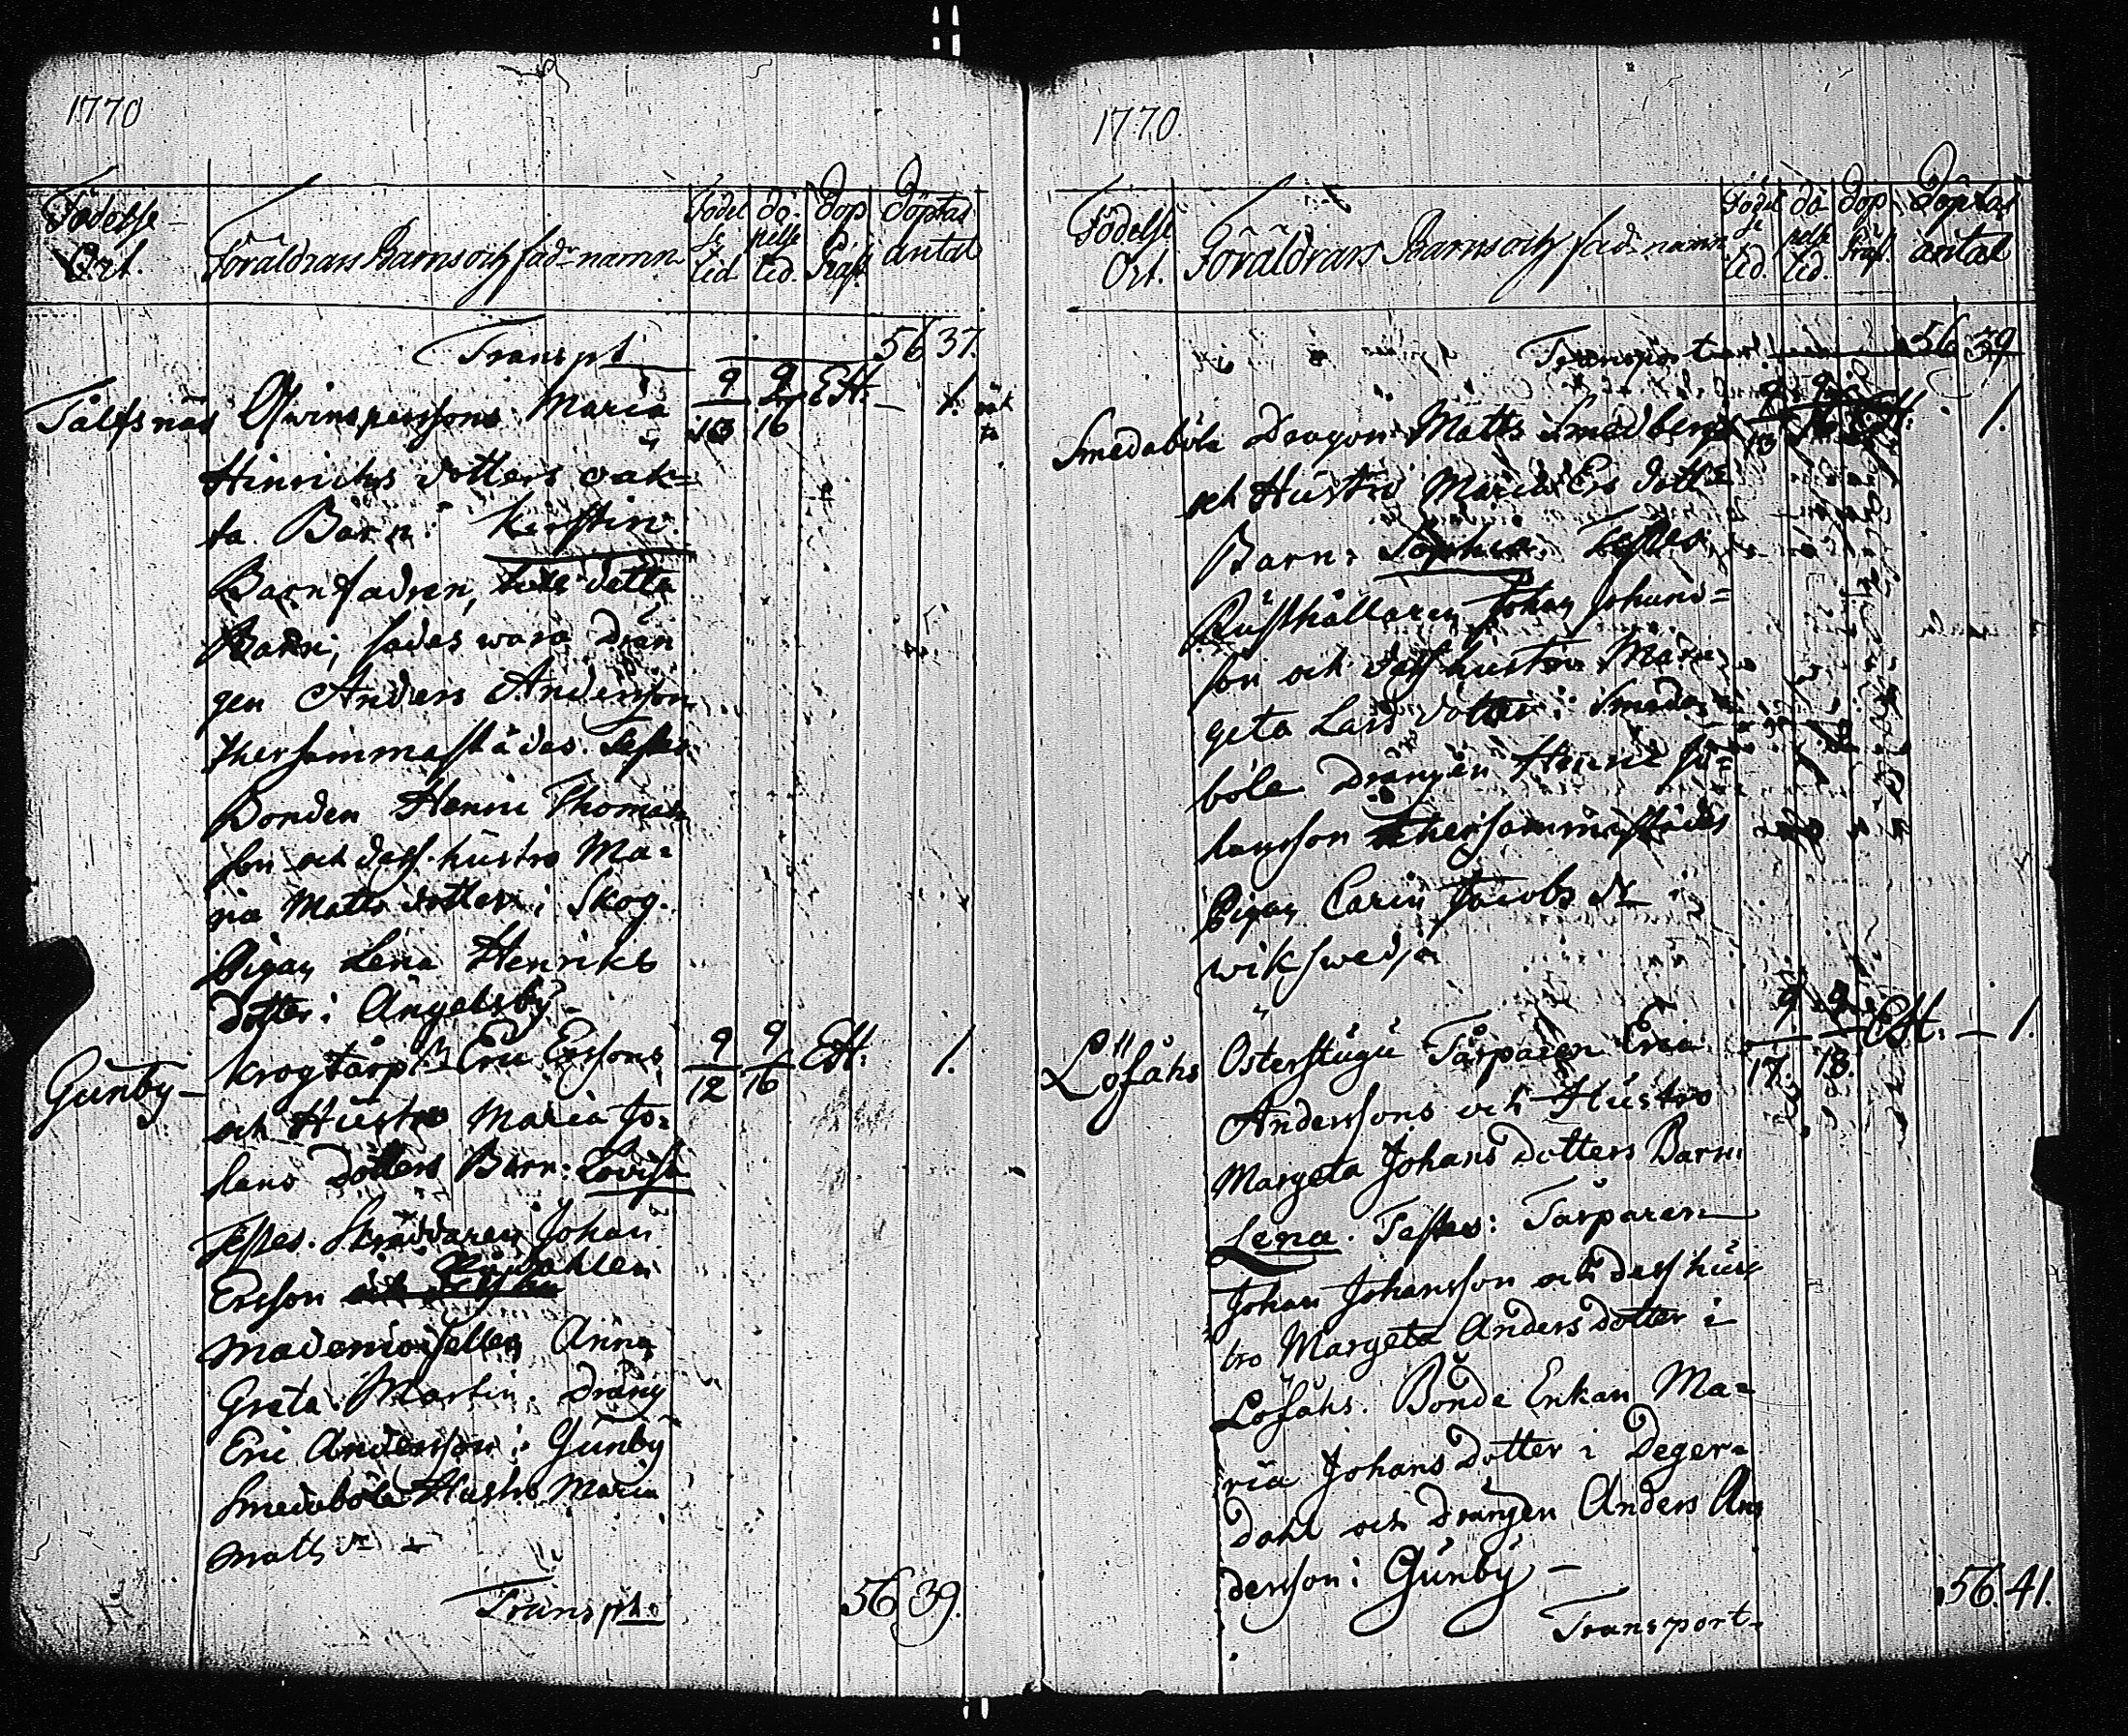 1770
Födelse Ort. Föräldrars Barns och fad: namn Födelse tid döpelse tid. dop Präst döptas antal
Transpt 56 37.
Tålfsnäs Qwinspersons Maria 9/10 9/16 EH. — 1. oäkta
Hinrichs dotters oäk=
ta Barn: Kerstin.
Barnfadren, till detta
Barn, sades wara drän
gen Anders Andersson
thersammastädes. Testes
Bonden Henric Thomas
son och dess hustro Ma=
ria Matts dotter i Skog.
Pigan Lena Henriks
dotter i Ängelsby
Gunby — Krogtorp: Eric Erssons 9/12 9/16 EH: 1.
och Hustro Maria Jo=
hans dotters Barn: Lovisa
Testes. Skräddaren Johan
Ersson
Mademoisellen Anna
Greta Martin. dräng
Eric Andersson i Gunby
Smedsböle Hustro Maria
Matts dr —
Transpt. 56 39.
1770.
Födelse Ort. Föräldrars Barns och fad: namn Födelse tid. döpelse tid. dop Präst. döptas antal
Transporterat 56 39
Smedsböle Dragon Matts Smedberg 9/13 9/16 EH. 1.
och Hustro Maria Ers dotters
Barn: Sophia. Testes
Rusthållaren Johan Johans=
son och dess hustru Mar=
geta Lars dotter i Smeds=
böle drängen Henric Jo=
hansson thersammastädes
Pigan Carin Jacobs dr i
wikswedja
Löfåhs Österstugu Tårparen Eric 9/17. 9/18. EH: — 1.
Anderssons och Hustro
Margeta Johans dotters Barn
Lena. Testes: Tårparen
Johan Johansson och dess hus
tro Margeta Anders dotter i
Löfåhs. Bonde Enkan Ma=
ria Johans dotter i Deger=
dahl och drängen Anders An
dersson i Gunby —
Transport. 56. 41.